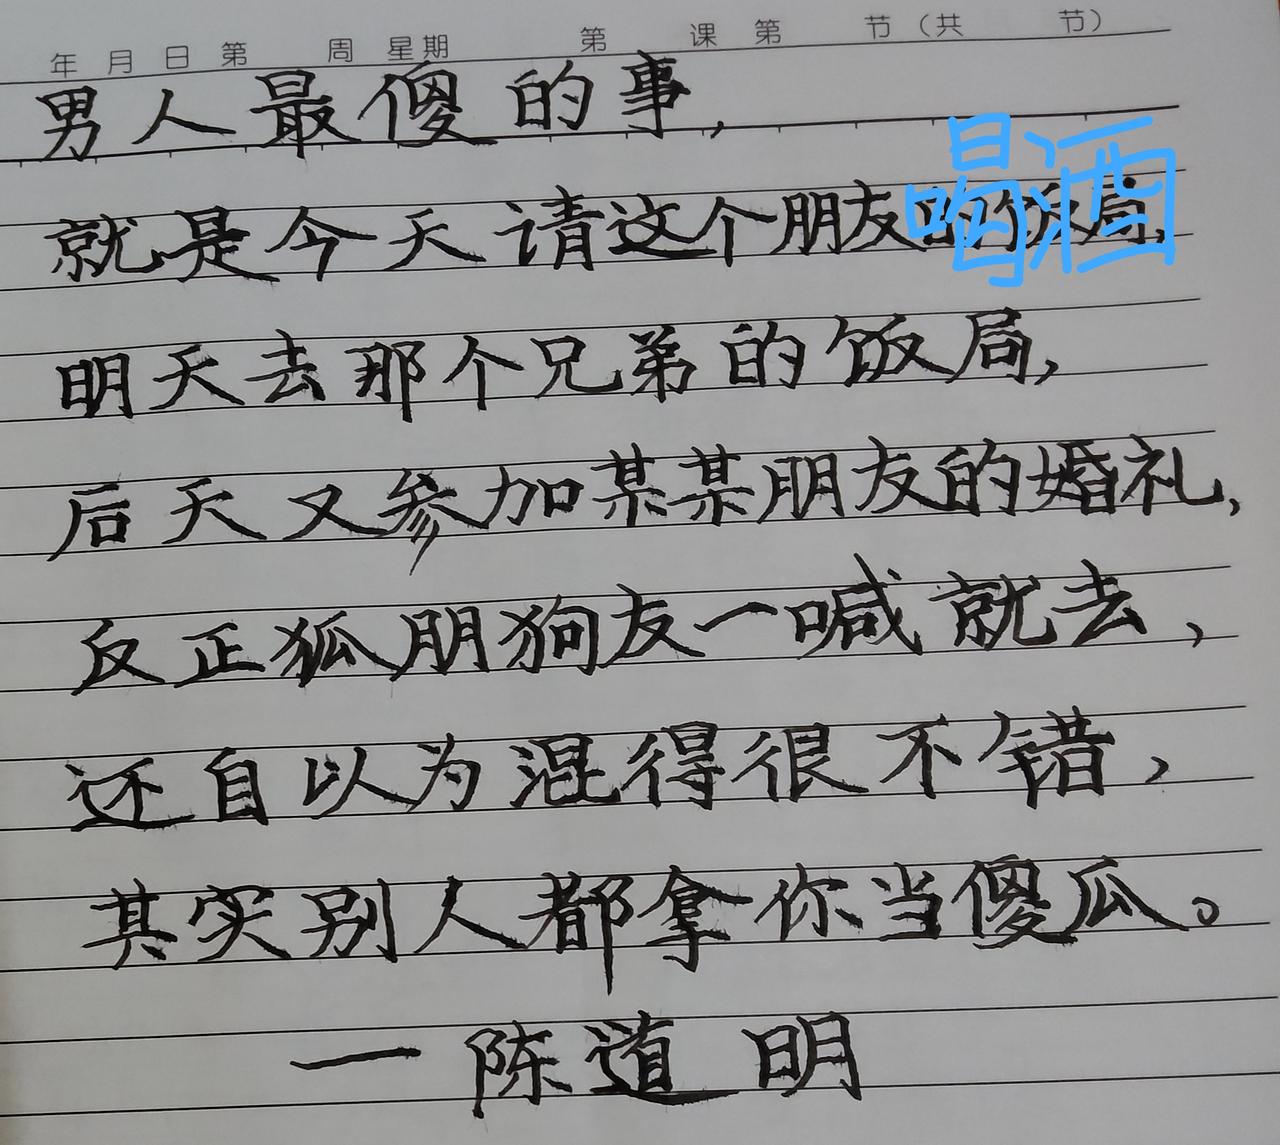 年 月 日 第 周 星期 第 课 第 节（共 节）
男人最傻的事，
就是今天请这个朋友喝酒，
明天去那个兄弟的饭局，
后天又参加某某朋友的婚礼，
反正狐朋狗友一喊就去，
还自以为混得很不错，
其实别人都拿你当傻瓜。
一陈道明